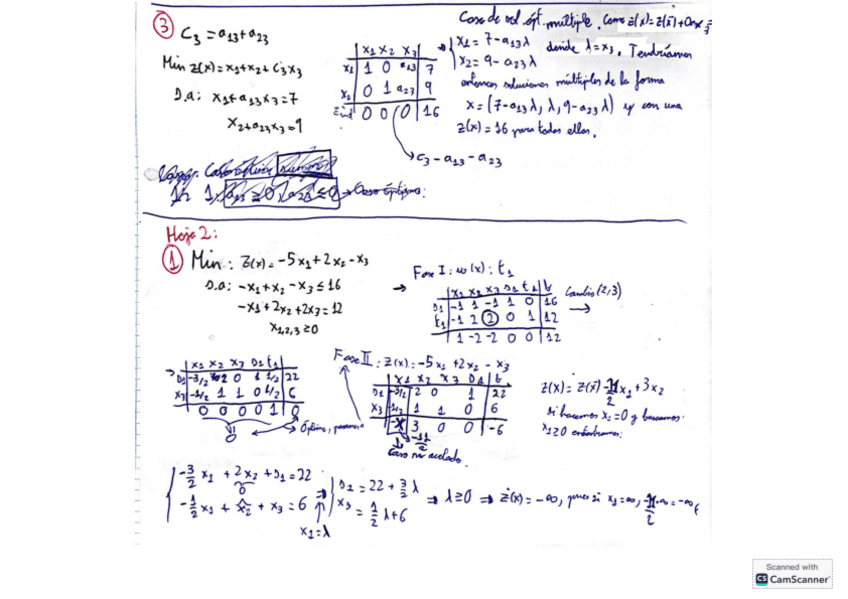 ③ C₃ = a₁₃ + a₂₃
Min z(x) = x₁ + x₂ + C₃x₃
s.a: x₁ + a₁₃x₃ = 7
x₂ + a₂₃x₃ = 9
x₁ x₂ x₃
x₁ 1 0 a₁₃ 7
x₂ 0 1 a₂₃ 9
0 0 0 16
→ c₃ - a₁₃ - a₂₃
Caso de sol. ópt. múltiple. Como z(x) = z(x̄) +
x₁ = 7 - a₁₃λ
x₂ = 9 - a₂₃λ
donde λ = x₃. Tendríamos
entonces soluciones múltiples de la forma
x = (7 - a₁₃λ, λ, 9 - a₂₃λ) y con una
z(x) = 16 para todas ellas.
Hoja 2:
① Min: z(x) = -5x₁ + 2x₂ - x₃
s.a: -x₁ + x₂ - x₃ ≤ 16
-x₁ + 2x₂ + 2x₃ = 12
x₁,₂,₃ ≥ 0
→ Fase I: w(x): t₁
x₁ x₂ x₃ s₁ t₁ b
s₁ -1 1 -1 1 0 16
t₁ -1 2 2 0 1 12
1 -2 -2 0 0 12
Cambio (2,3) →
→ x₁ x₂ x₃ s₁ t₁
s₁ -3/2 2 0 1 1/2 22
x₃ -1/2 1 1 0 1/2 6
0 0 0 0 1 0
Óptimo,
Fase II: z(x): -5x₁ + 2x₂ - x₃
x₁ x₂ x₃ s₁ b
s₁ -3/2 2 0 1 22
x₃ -1/2 1 1 0 6
3 0 0 -6
-11/2
Caso no acotado.
z(x) = z(x̄) - 11/2 x₁ + 3x₂
si hacemos x₂ = 0 y buscamos
x₁ ≥ 0
-3/2 x₁ + 2x₂ + s₁ = 22
-1/2 x₁ + x₂ + x₃ = 6
x₁ = λ
⇒ s₁ = 22 + 3/2 λ
x₃ = 1/2 λ + 6
⇒ λ ≥ 0 ⇒ z(x) = -∞, pues si x₁ = ∞, -11/2 · ∞ = -∞
Scanned with
CS CamScanner